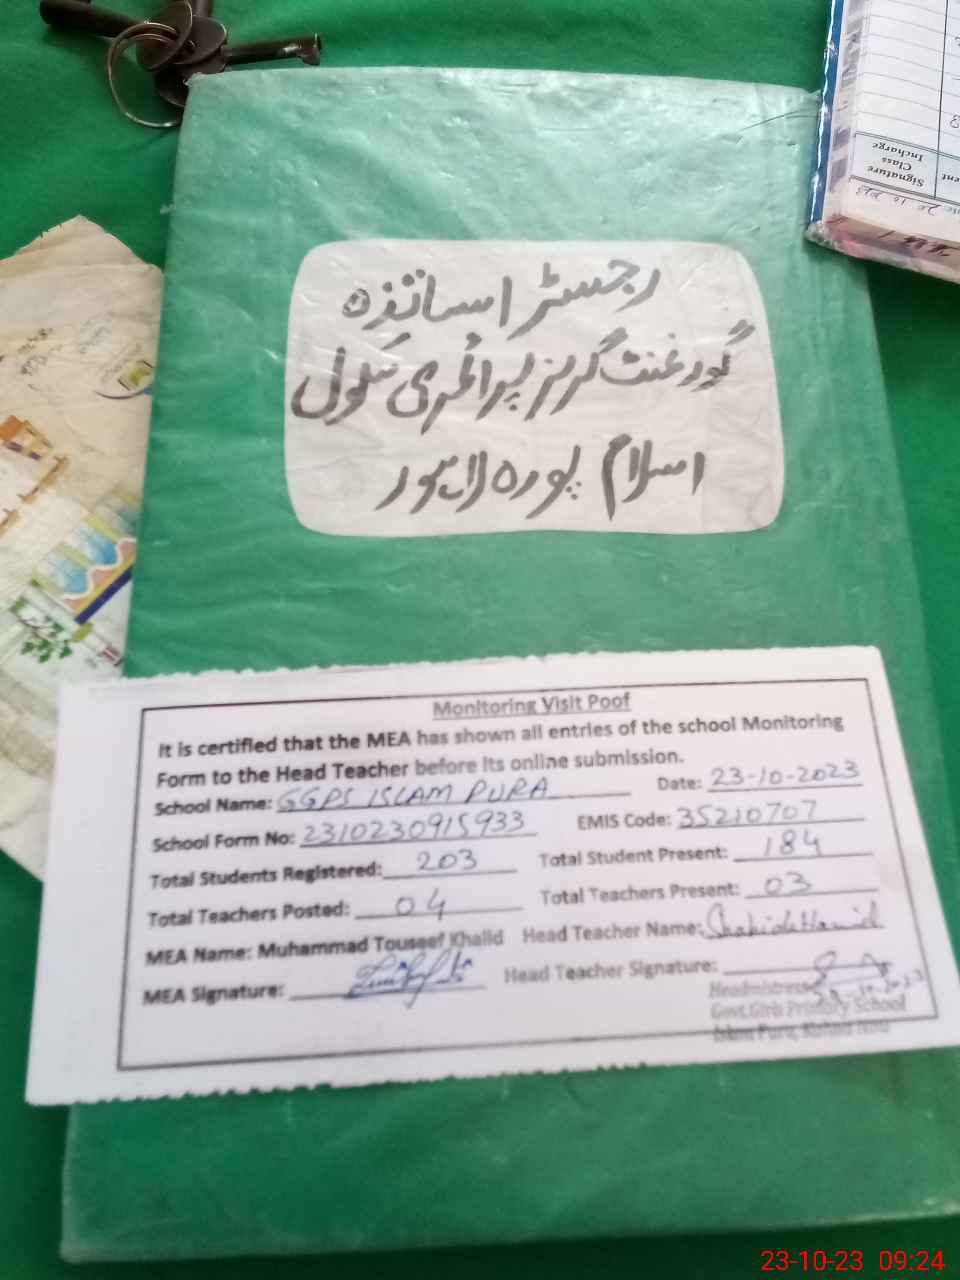 رجسٹر اساتذہ
گورنمنٹ گرلز پرائمری سکول
اسلام پورہ لاہور
Signature
Class
Incharge
20.10.2023
Monitoring Visit Poof
It is certified that the MEA has shown all entries of the school Monitoring
Form to the Head Teacher before its online submission.
School Name: GGPS ISLAM PURA Date: 23-10-2023
School Form No: 2310230915933 EMIS Code: 35210707
Total Students Registered: 203 Total Student Present: 184
Total Teachers Posted: 04 Total Teachers Present: 03
MEA Name: Muhammad Touseef Khalid Head Teacher Name: Shahida Hamid
MEA Signature: Head Teacher Signature:
Headmistress
Govt. Girls Primary School
Islam Pura, Kahna Nau
23-10-23 09:24